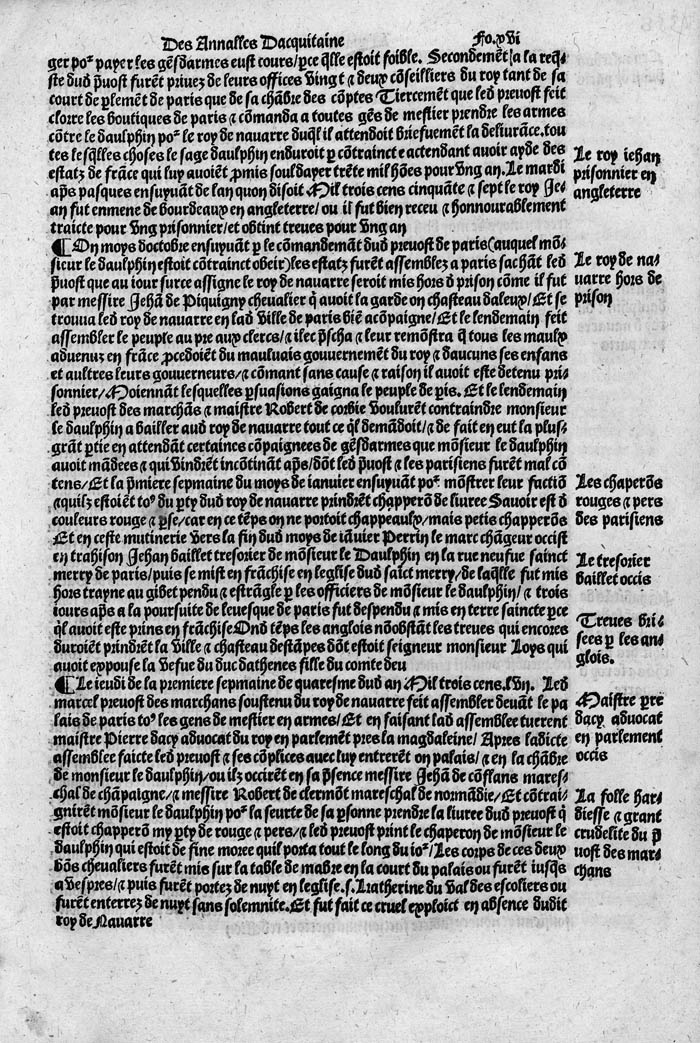 Des Annalles Dacquitaine
Fo.xvi
ger por payer les gẽsdarmes eust cours/ pce q̃lle estoit foible. Secondemẽt/a la req̃-
ste dud p̃uost furẽt priuez de leurs offices vingt ⁊ deux cõseilliers du roy tant de sa
court de plemẽt de paris que de sa chãbre des cõptes Tiercemẽt que led preuost feit
clorre les boutiques de paris ⁊ cõmanda a toutes gẽs de mestier prendre les armes
cõtre le daulphin por le roy de nauarre duq̃l il attendoit briefuemẽt la deliurãce. tou
tes lesq̃lles choses le sage daulphin enduroit p cõtraincte ⁊ actendant auoir ayde des
estatz de frãce qui luy auoiẽt pmis souldayer trẽte mil hões pour vng an. Le mardi
ap̃s pasques ensuyuãt de lan quon disoit Mil trois cens cinquãte ⁊ sept le roy Je-
an fut enmene de bourdeaux en angleterre/ ou il fut bien receu ⁊ honnourablement
traicte pour vng prisonnier/ et obtint treues pour vng an
¶ On moys doctobre ensuyuãt p le cõmandemãt dud preuost de paris(auquel mõ-
sieur le daulphin estoit cõtrainct obeir)les estatz furẽt assemblez a paris sachãt led
p̃uost que au iour surce assigne le roy de nauarre seroit mis hors d prison cõme il fut
par messire Jehã de Piquigny cheualier q̃ auoit la garde on chasteau daleux/ Et se
trouua led roy de nauarre en lad ville de paris biẽ acõpaigne/ Et le lendemain feit
assembler le peuple au pre aux clercs/ ⁊ ilec p̃scha ⁊ leur remõstra q̃ tous les maulx
aduenuz en frãce pcedoiẽt du mauluais gouuernemẽt du roy ⁊ daucuns ses enfans
et aultres leurs gouuerneurs/ ⁊ cõmant sans cause ⁊ raison il auoit este detenu pri-
sonnier/ Moiennãt lesquelles psuasions gaigna le peuple de pis. Et le lendemain
led preuost des marchãs ⁊ maistre Robert de corbie voulurẽt contraindre monsieur
le daulphin a bailler aud roy de nauarre tout ce q̃l demãdoit/ ⁊ de fait en eut la plus-
grãt ptie en attendãt certaines cõpaignees de gẽsdarmes que mõsieur le daulphin
auoit mãdees ⁊ qui vindrẽt incõtinãt ap̃s/ dõt led p̃uost ⁊ les parisiens furẽt mal cõ
tens/ Et la p̃miere sepmaine du moys de ianuier ensuyuãt por mõstrer leur factiõ
⁊ quilz estoiẽt tos du pty dud roy de nauarre prindrẽt chapperõ de liuree Sauoir est d
couleurs rouge ⁊ pse/ car en ce tẽps on ne portoit chappeaulx/ mais petis chapperõs
Et en ceste mutinerie vers la fin dud moys de iãuier Perrin le marc chãgeur occist
en trahison Jehan baillet tresorier de mõsieur le Daulphin en la rue neufue sainct
merry de paris/ puis se mist en frãchise en leglise dud saĩct merry/ de laq̃lle fut mis
hors trayne au gibet pendu ⁊ estrãgle p les officiers de mõsieur le daulphin/ ⁊ trois
iours ap̃s a la poursuite de leuesque de paris fut despendu ⁊ mis en terre saincte pce
q̃l auoit este prins en frãchise Ond tẽps les anglois nõobstãt les treues qui encores
duroiẽt prindrẽt la ville ⁊ chasteau destãpes dõt estoit seigneur monsieur Loys qui
auoit expouse la vefue du duc dathenes fille du comte deu
¶ Le ieudi de la premiere sepmaine de quaresme dud an Mil trois cens.lvii. Led
marcel preuost des marchans soustenu du roy de nauarre feit assembler deuãt le pa
lais de paris tos les gens de mestier en armes/ Et en faisant lad assemblee tuerent
maistre Pierre dacy aduocat du roy en parlemẽt pres la magdaleine/ Apres ladicte
assemblee faicte led preuost ⁊ ses cõplices auec luy entrerẽt on palais/ ⁊ en la chãbre
de monsieur le daulphin/ ou ilz occirẽt en sa p̃sence messire Jehã de cõflans mares-
chal de chãpaigne/ ⁊ messire Robert de clermõt mareschal de normãdie/ Et cõtrai-
gnirẽt mõsieur le daulphin por la seurte de sa psonne prendre la liuree dud preuost q̃
estoit chapperõ my pty de rouge ⁊ pers/ ⁊ led preuost print le chaperon de mõsieur le
daulphin qui estoit de fine moree quil porta tout le long du ior/ Les corps de ces deux
bõs cheualiers furẽt mis sur la table de mabre en la court du palais ou furẽt iusq̃s
a vespres/ ⁊ puis furẽt portez de nuyt en leglise .s. katherine du val des escoliers ou
furẽt enterrez de nuyt sans solemnite. Et fut fait ce cruel exploict en absence dudit
roy de Nauarre
Le roy iehan
prisonnier en
angleterre
Le roy de na-
uarre hors de
prison
Les chaperõs
rouges ⁊ pers
des parisiens
Le tresorier
baillet occis
Treues bri-
sees p les an-
glois.
Maistre pre
dacy aduocat
en parlement
occis
La folle har-
diesse ⁊ grant
crudelite du p̃
uost des mar-
chans